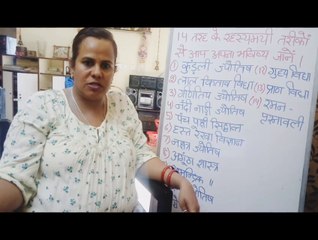 14 तरह के रहस्यमयी तरीकों
से आप अपना भविष्य जानें।
① कुंडली ज्योतिष (12) गुह्य विद्या
② लाल किताब विद्या (13) प्राण विद्या
③ गणितीय ज्योतिष (14) रमल-
④ नंदी नाड़ी ज्योतिष प्रश्नावली
⑤ पंच पक्षी सिद्धान्त
⑥ हस्त रेखा विज्ञान
⑦ नक्षत्र ज्योतिष
⑧ अंगूठा शास्त्र